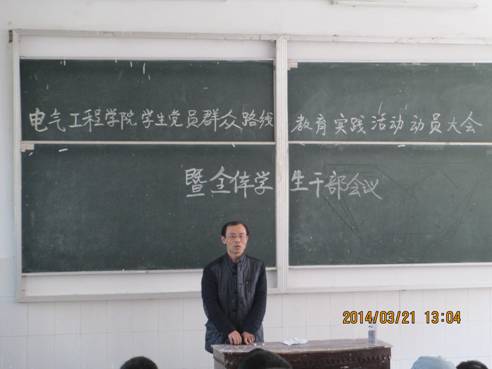 电气工程学院学生党员群众路线教育实践活动动员大会
暨全体学生干部会议
2014/03/21 13:04